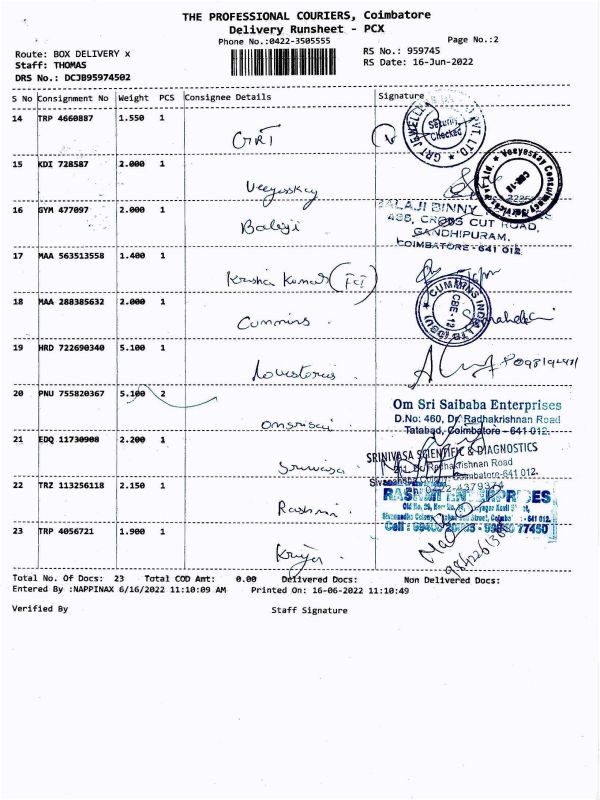 THE PROFESSIONAL COURIERS, Coimbatore
Delivery Runsheet - PCX
Phone No.:0422-3505555
Page No.:2
Route: BOX DELIVERY x
RS No.: 959745
Staff: THOMAS
RS Date: 16-Jun-2022
DRS No.: DCJB95974502
S No Consignment No Weight PCS Consignee Details Signature
14 TRP 4660887 1.550 1
GRT
GRT JEWELLE PVT. LTD.
Security Checked
15 KDI 728587 2.000 1
Veeyesskay
Veeyeskay Consultancy Services Pvt Ltd.
CBE-12
16 GYM 477097 2.000 1
Balaji
BALAJI BINNY
CROSS CUT ROAD,
GANDHIPURAM,
COIMBATORE - 641 012
17 MAA 563513558 1.400 1
Krisha Kumar (FCI)
18 MAA 288385632 2.000 1
Cummins
CUMMINS
CBE-12
19 HRD 722690340 5.100 1
Lovestories
20 PNU 755820367 5.100 2
Omsrisai
Om Sri Saibaba Enterprises
D.No: 460, Dr. Radhakrishnan Road
Tatabad, Coimbatore - 641 012.
21 EDQ 11730908 2.200 1
Srinivasa
SRINIVASA SCIENTIFIC & DIAGNOSTICS
Radhakrishnan Road
Coimbatore-641 012.
0422-4379374
22 TRZ 113256118 2.150 1
Rashmi
RASHMI ENTERPRISES
23 TRP 4056721 1.900 1
Total No. Of Docs: 23 Total COD Amt: 0.00 Delivered Docs: Non Delivered Docs:
Entered By :NAPPINAX 6/16/2022 11:10:09 AM Printed On: 16-06-2022 11:10:49
Verified By Staff Signature